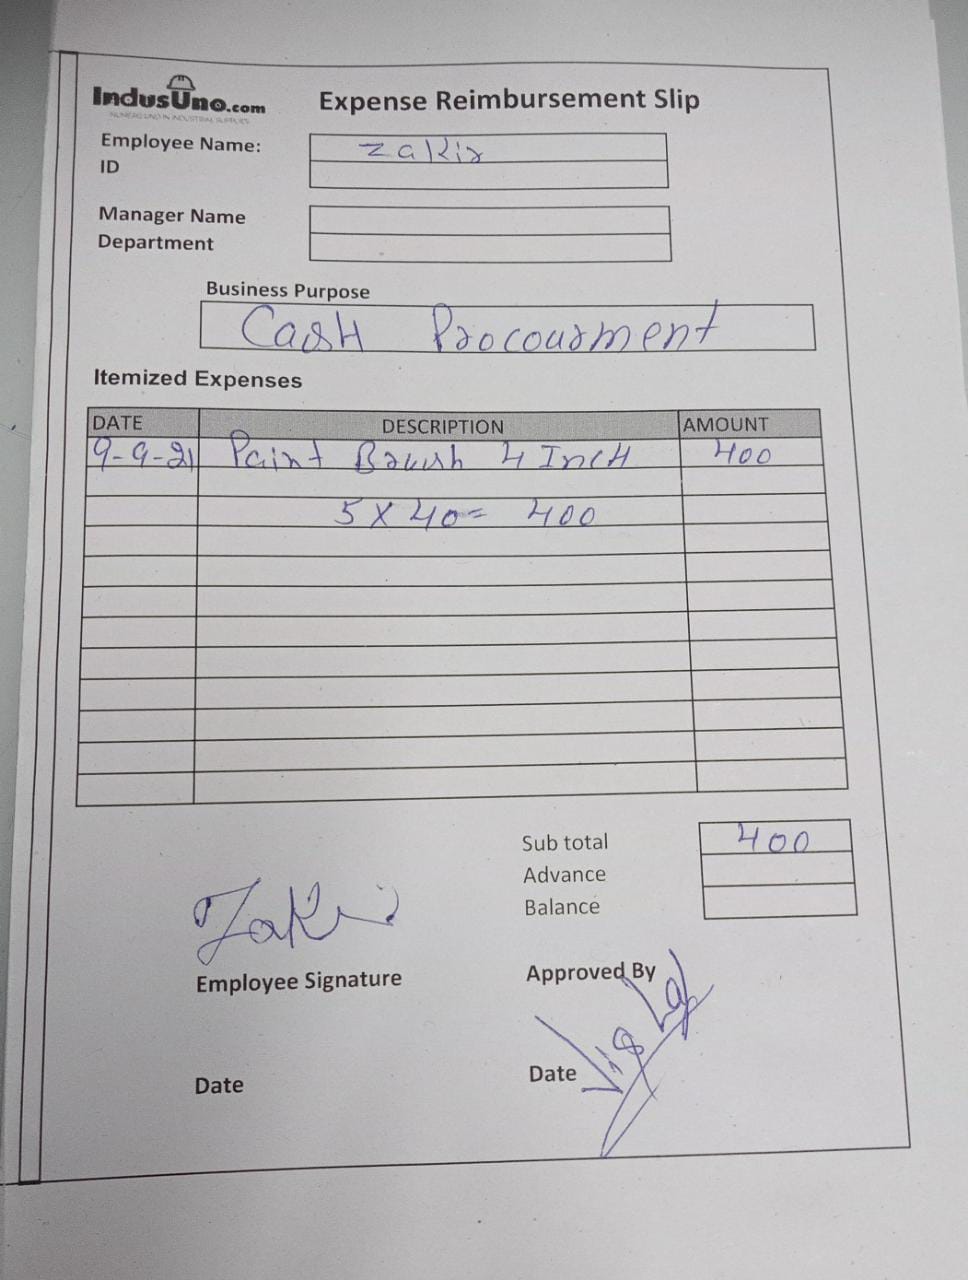 IndusUno.com
NUMERO UNO IN INDUSTRIAL SUPPLIES
Expense Reimbursement Slip
Employee Name: Zakir
ID
Manager Name
Department
Business Purpose
Cash Procourment
Itemized Expenses
DATE DESCRIPTION AMOUNT
9-9-21 Paint Brush 4 Inch 400
5 X 40 = 400
Sub total 400
Advance
Balance
Zakir
Employee Signature
Approved By
Date
Date